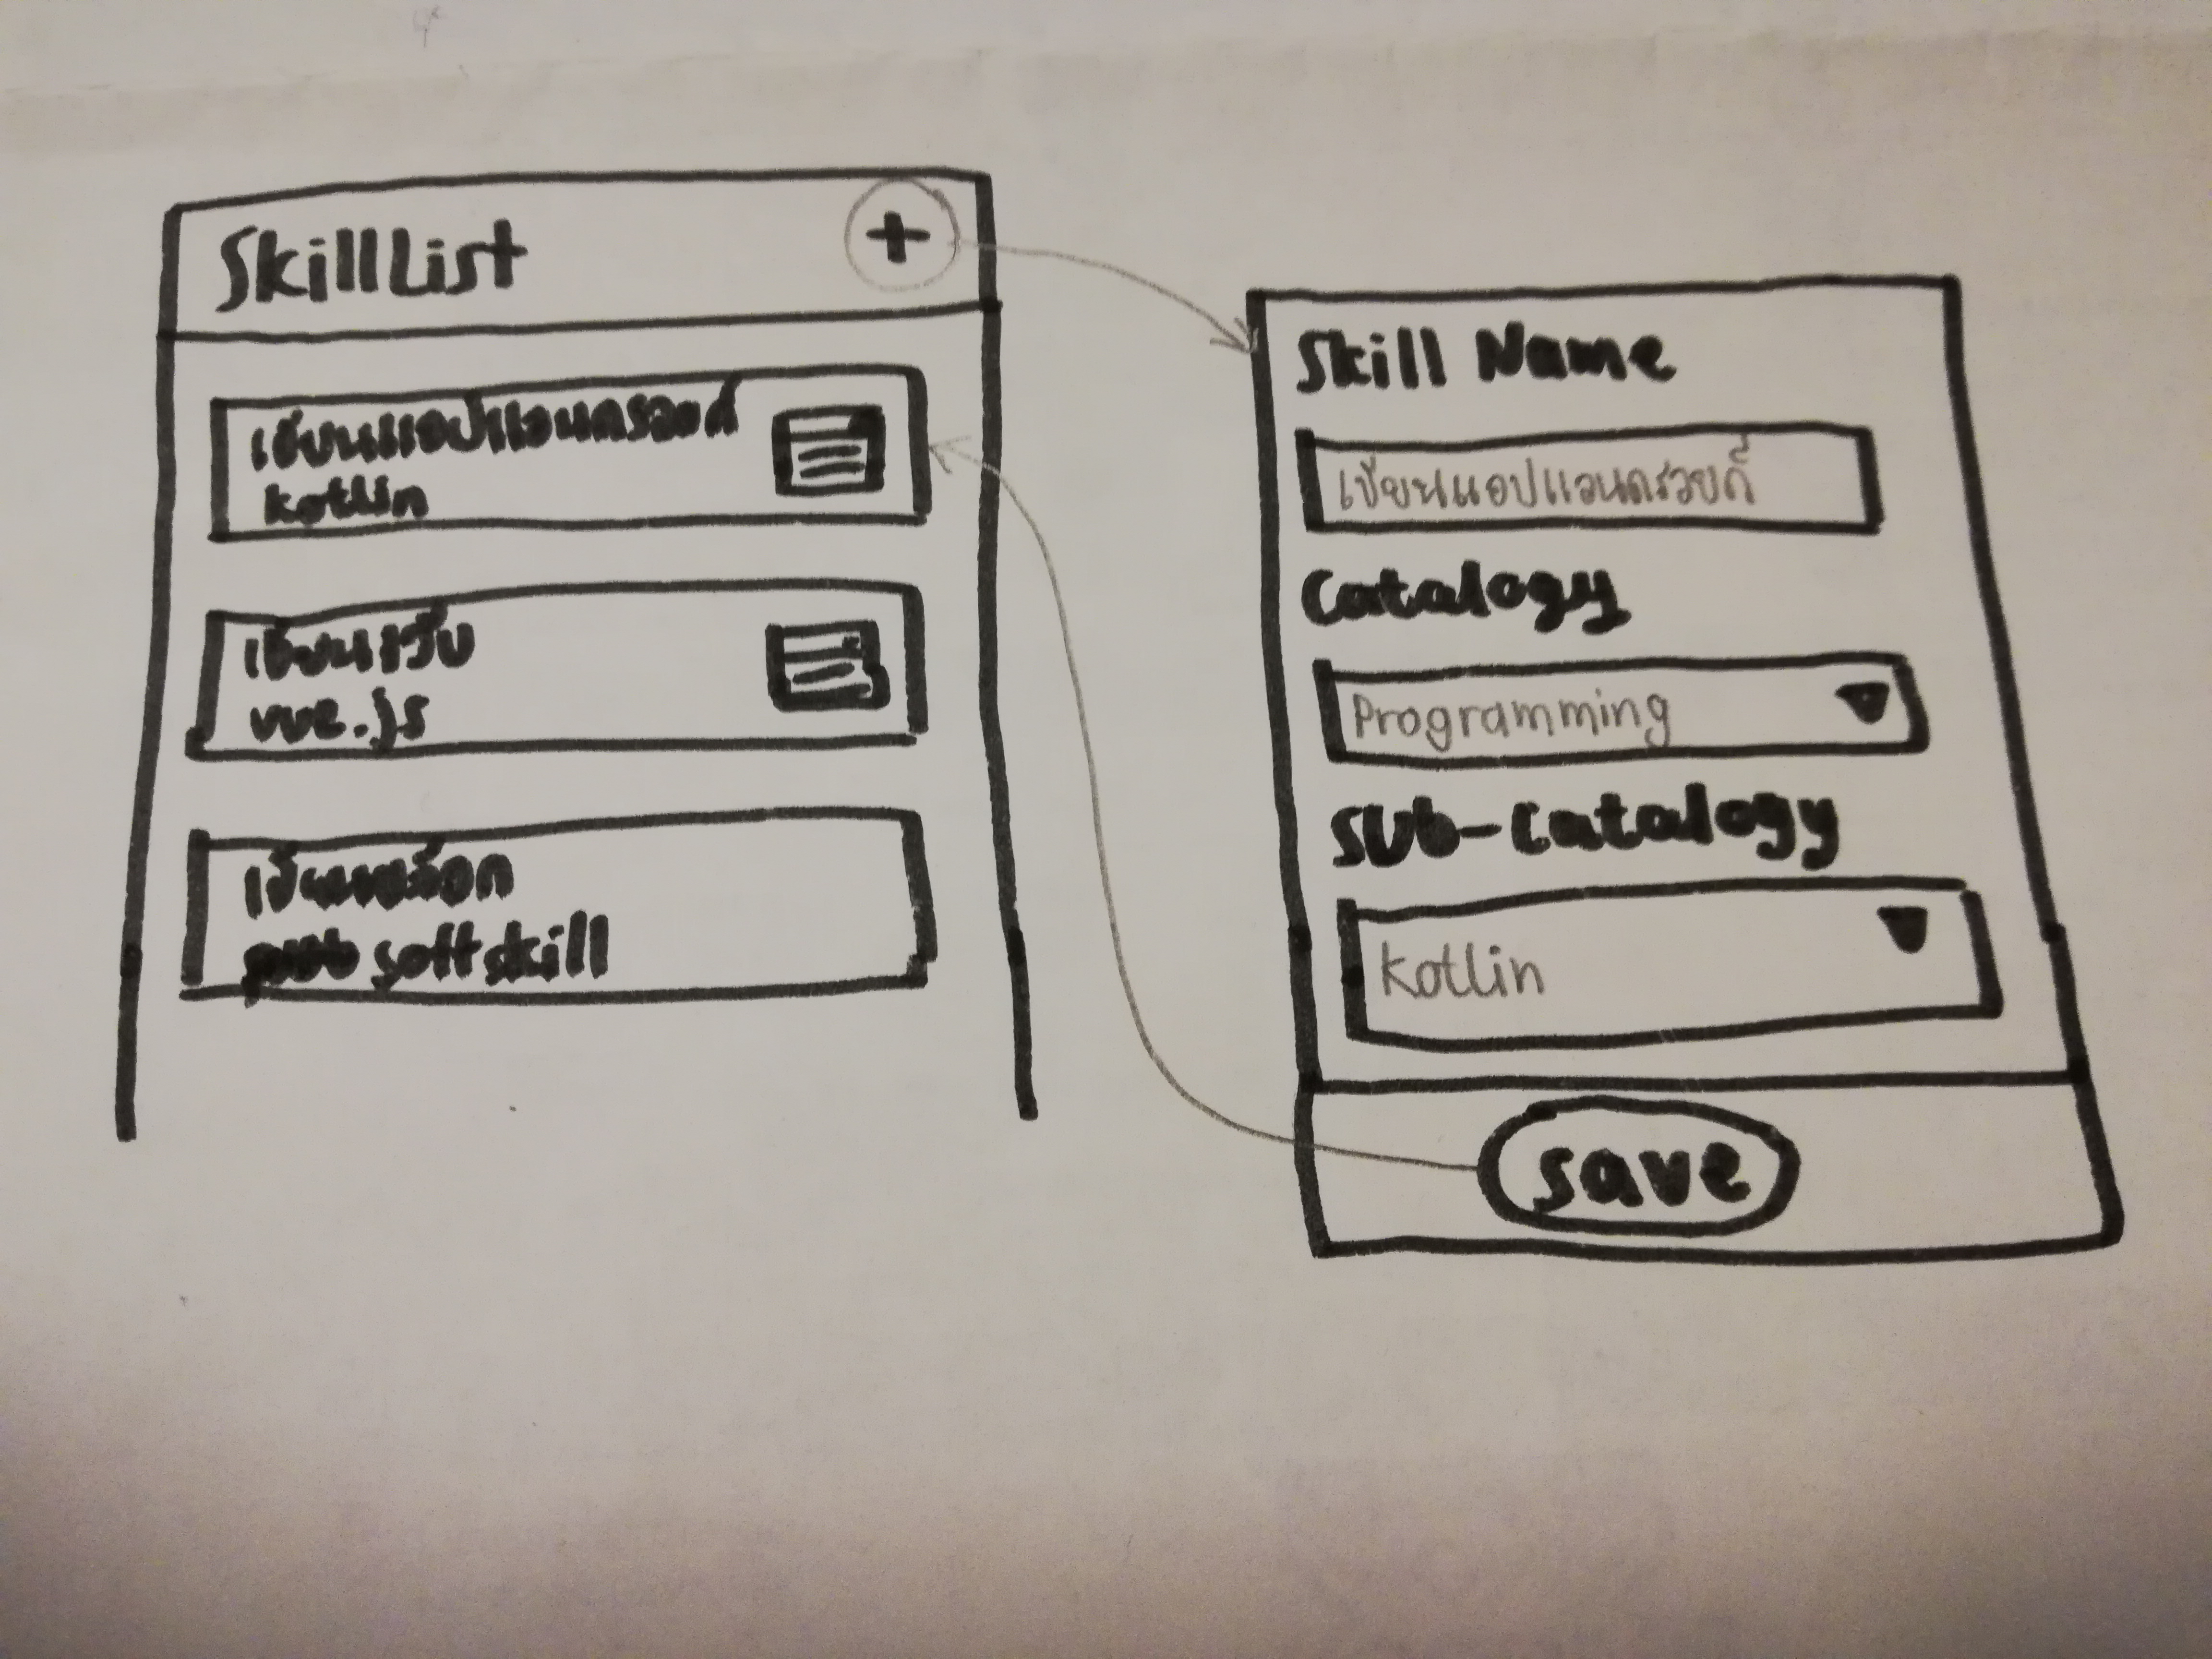 SkillList
+
เขียนแอปแอนดรอยด์
kotlin
เขียนเว็บ
vue.js
เขียนบล็อก
soft skill
Skill Name
เขียนแอปแอนดรอยด์
Catalogy
Programming
Sub-Catalogy
Kotlin
save